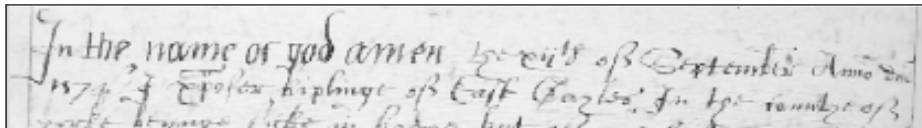 In the name of god amen the xijth of September Anno dni
1574 I xpofer kiplinge of East In the countye of
yorke beynge sicke in but